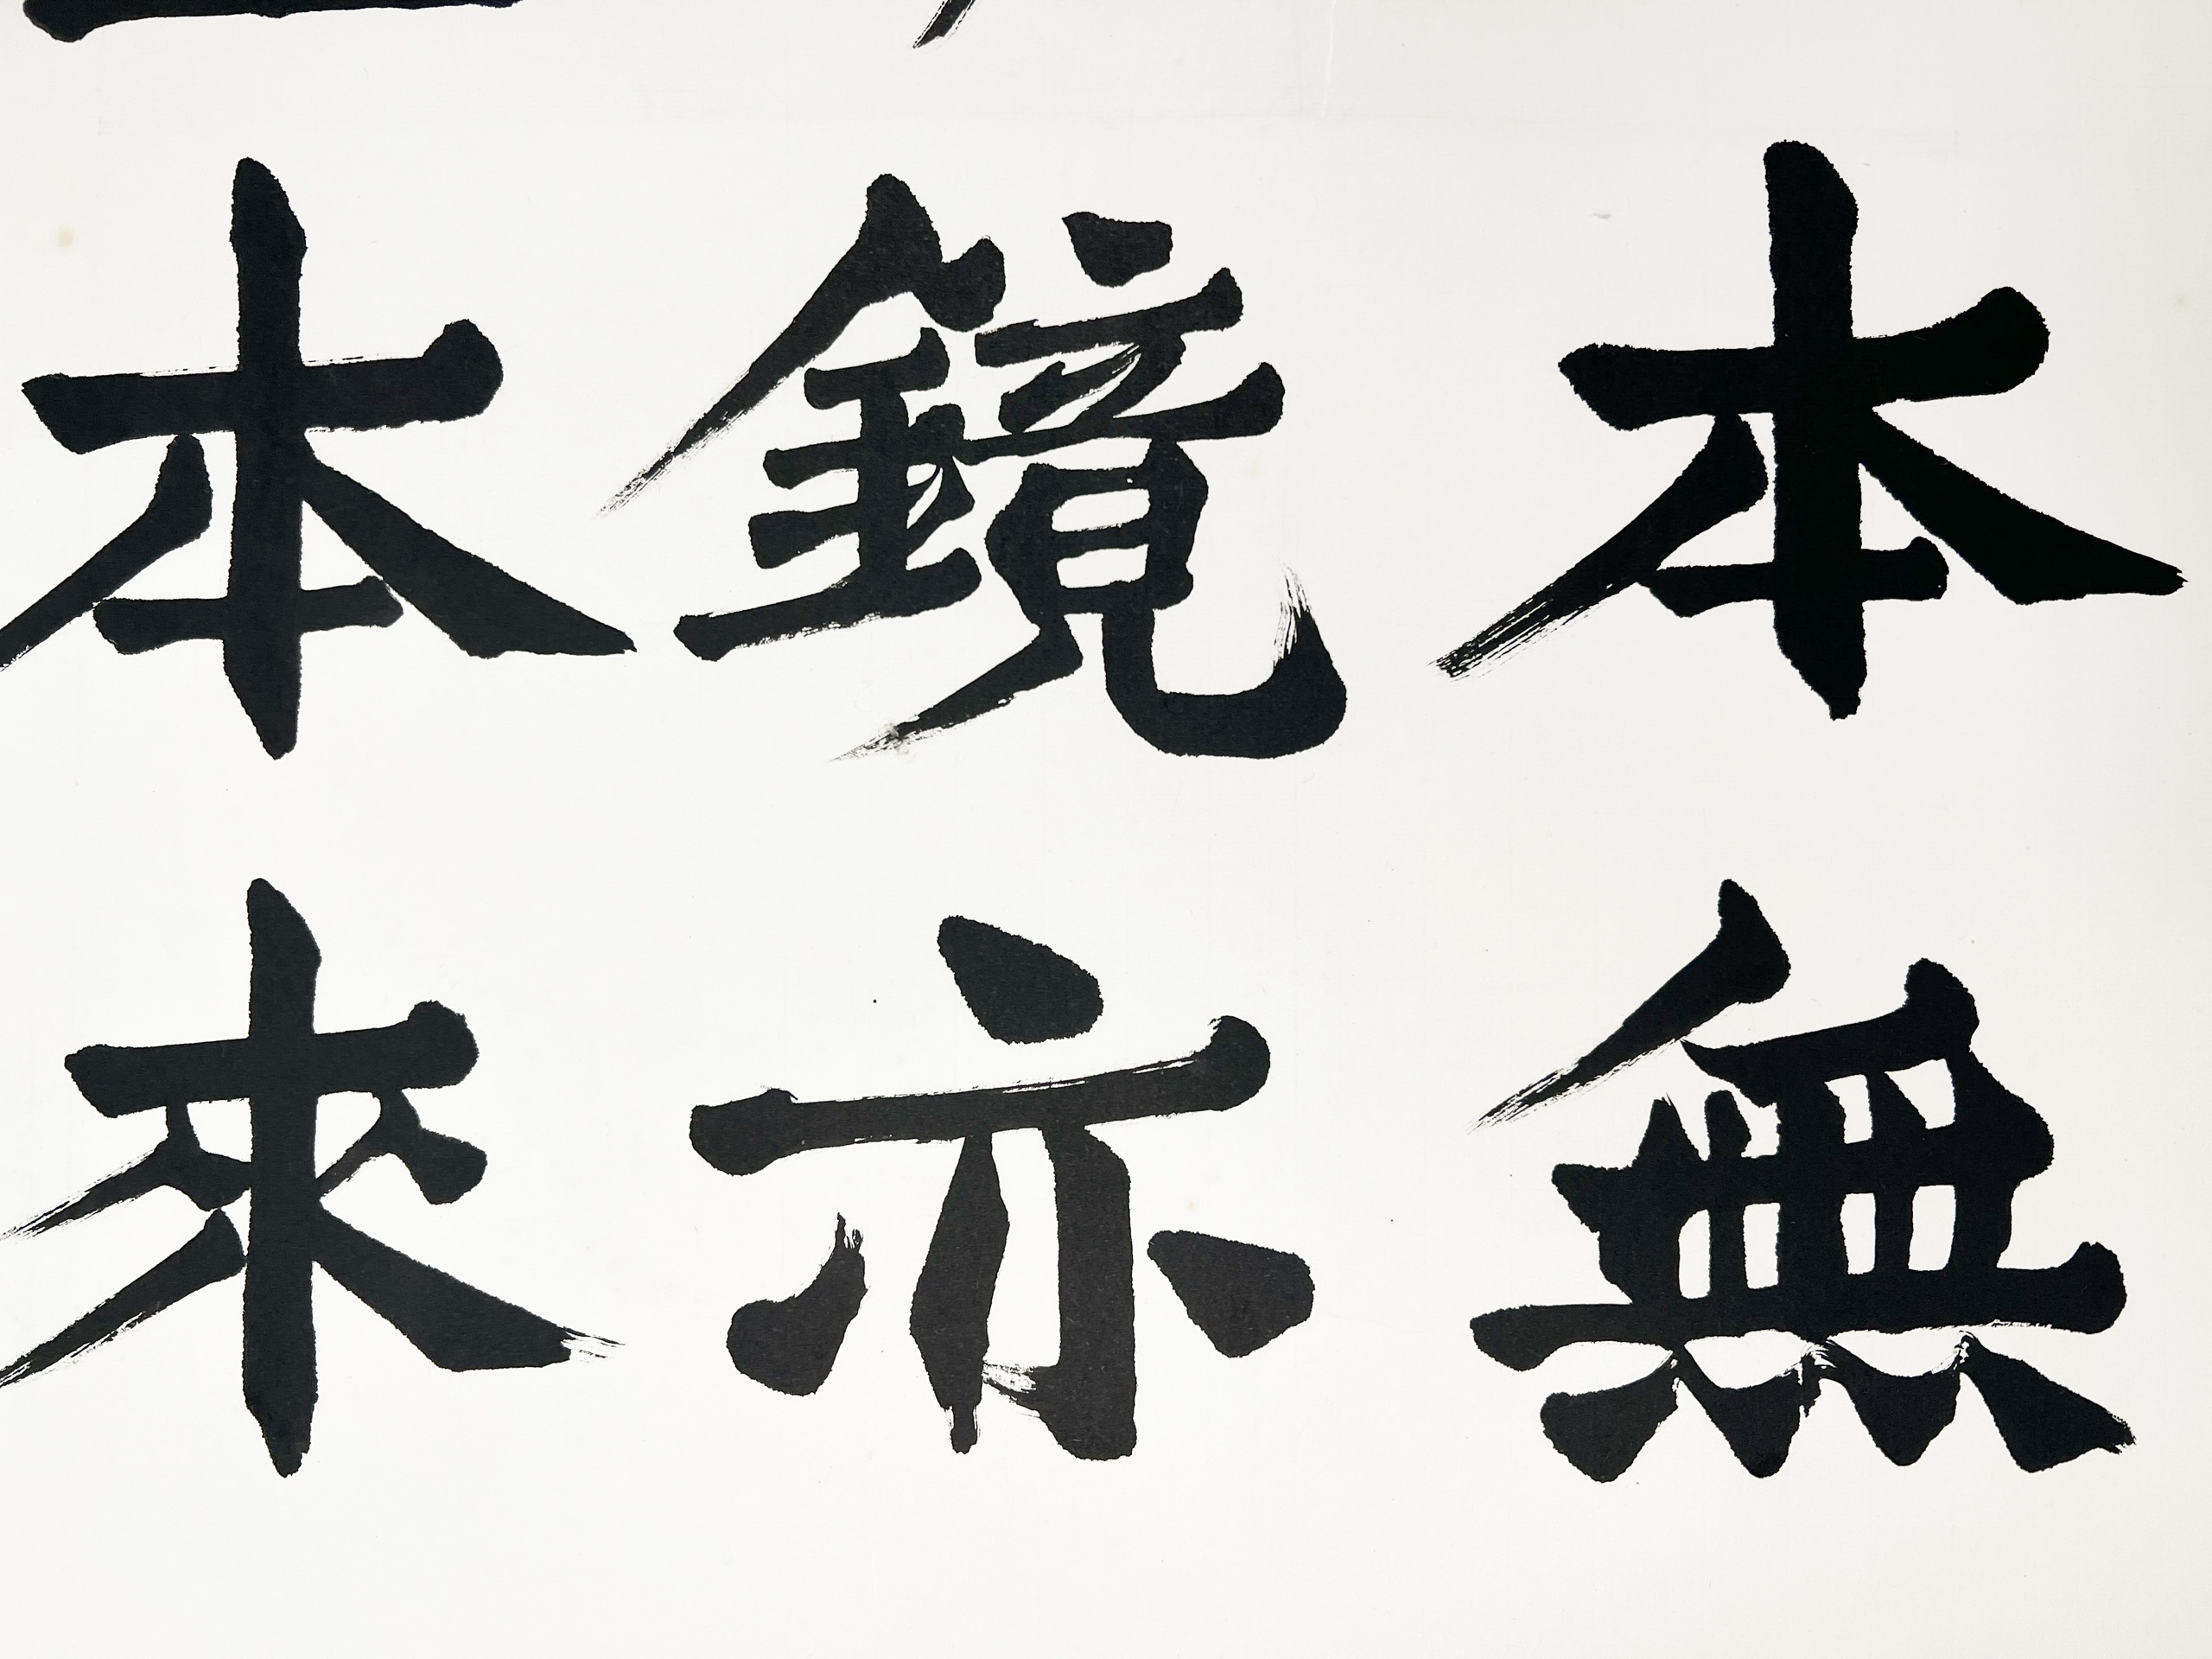 本無
鏡亦
本來